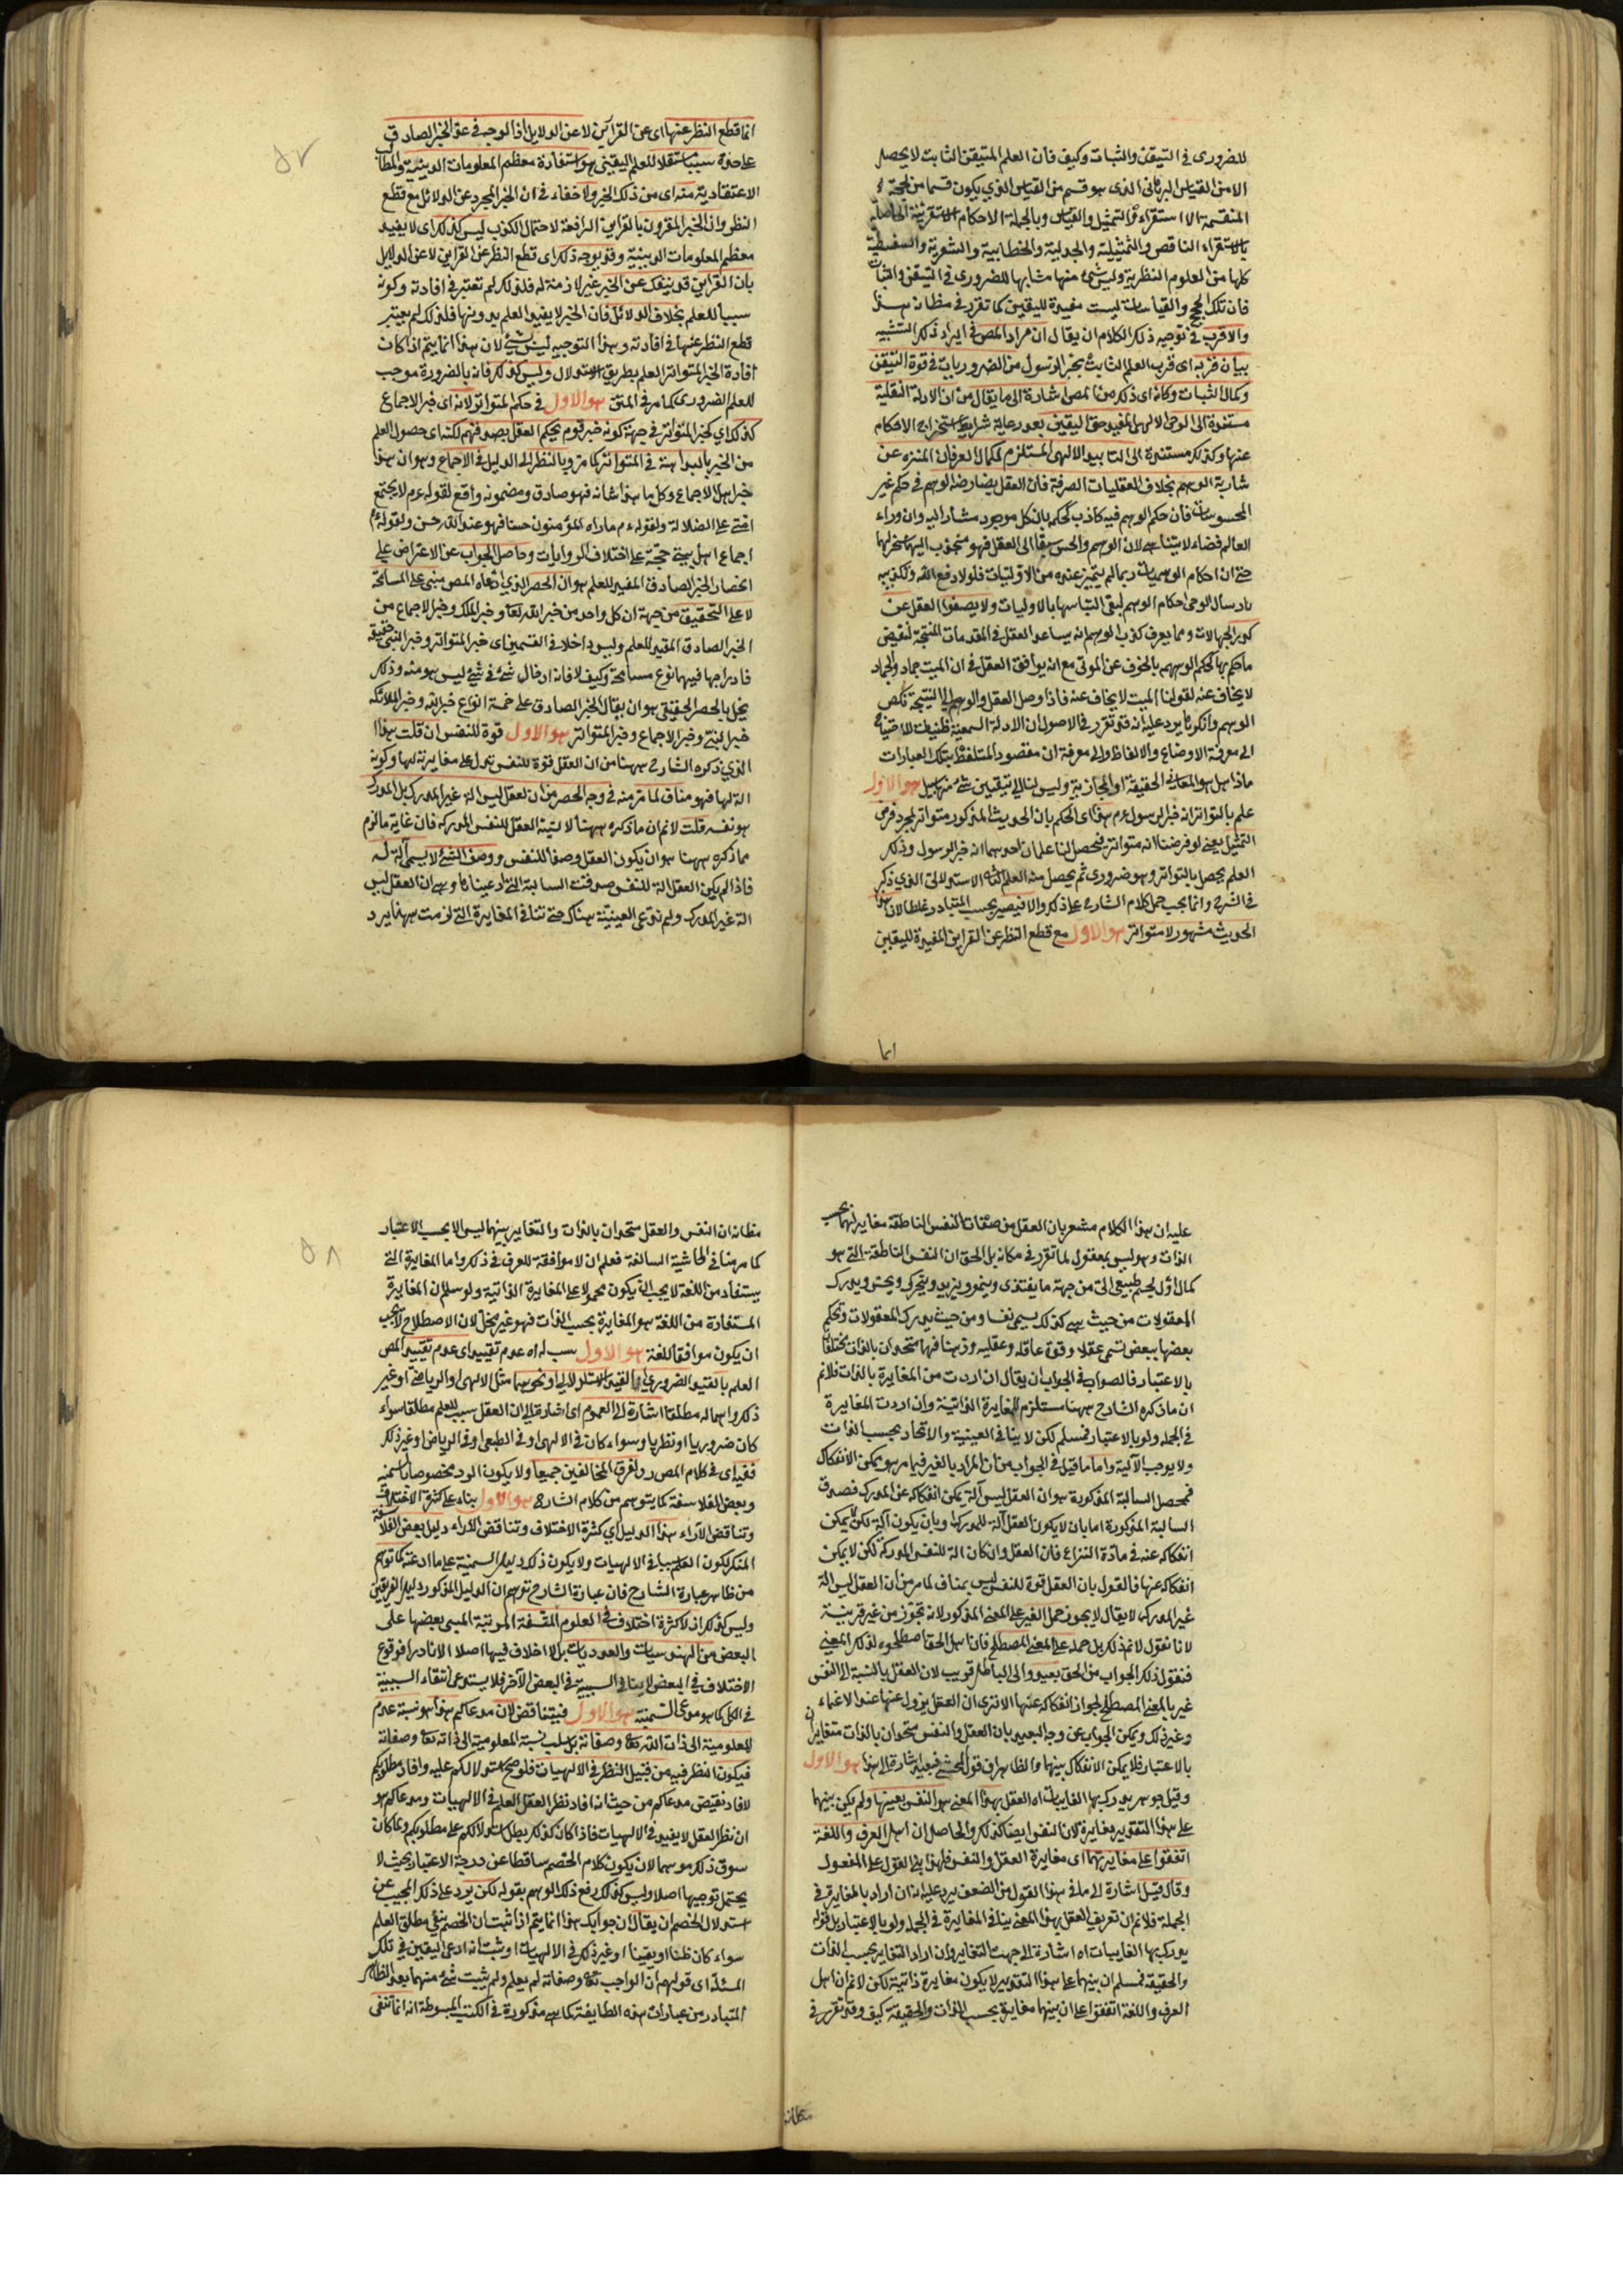 للضروري في التيقن والثبات وكيف فان العلم المتيقن الثابت لا يحصل
الا من القياس البرهاني الذي هو قسم من القياس الذي يكون قسما من الحجة
المنقسمة الى الاستقراء والتمثيل والقياس وبالجملة الاحكام الاستقرائية الحاصلة
بالاستقراء الناقص والتمثيلية والجدلية والخطابية والشعرية والسفسطية
كلها من العلوم النظرية وليس شيء منها مشابها للضروري في التيقن والثبات
فان تلك الحجج والقياسات ليست مفيدة لليقين كما تقرر في مظانه هذا
والاقرب في توجيه ذلك الكلام ان يقال ان مراد المص في ايراد ذلك التشبيه
بيان قربه اى قرب العلم الثابت بخبر الرسول من الضروريات في قوة التيقن
وكمال الثبات وكانه اى ذلك من المص اشارة الى ما يقال من ان الادلة النقلية
مستندة الى الوحى الالهى المفيد حق اليقين بعد رعاية شرايط استخراج الاحكام
عنها وكذلك مستندة الى التاييد الالهى المستلزم لكمال العرفان المنزه عن
شايبة الوهم بخلاف العقليات الصرفة فان العقل يعارضه الوهم في حكم غير
المحسوسات فان حكم الوهم فيه كاذب كحكمه بان كل موجود مشار اليه وان وراء
العالم فضاء لا يتناهى لان الوهم والحس سبقا الى العقل فهو منجذب اليهما مسخر لهما
حتى ان احكام الوهميات ربما لم يتميز عنده من الاوليات فلولا دفع الله وتكذيبه
بارسال الوحى احكام الوهم لبقى التباسها بالاوليات ولا يصفو العقل عن
كدر الجهالات ومما يعرف كذب الوهم انه يساعد العقل في المقدمات المنتجة لنقيض
ما حكم بها كحكم الوهم بالخوف عن الموتى مع انه يوافق العقل في ان الميت جماد والجماد
لا يخاف عنه لقولنا الميت لا يخاف عنه فاذا وصل العقل والوهم الى النتيجة نكص
الوهم وانكرها يرد عليه انه قد تقرر في الاصول ان الادلة السمعية ظنيات لاحتياجها
الى معرفة الاوضاع والالفاظ والى معرفة ان مقصود المتلفظ بتلك العبارات
ماذا هل هو المعاني الحقيقة او المجازية وليس لنا الى تيقين شيء منها سبيل هو الاول
علم بالتواتر انه خبر الرسول عدم هذا اى الحكم بان الحديث المذكور متواتر لمجرد فرض
التمثيل يعني لو فرضنا انه متواتر فحصل لنا علمان احدهما انه خبر الرسول وذلك
العلم يحصل بالتواتر وهو ضروري ثم يحصل منه العلم الاستدلالى الذي ذكر
في الشرح وانما يجب حمل كلام الشارح على ذلك والا فيصير بحسب المتبادر غلطا لان هذا
الحديث مشهور لا متواتر هو الاول مع قطع النظر عن القراين المفيدة لليقين
انما
انما قطع النظر عنها اى عن القراين لا عن الدلايل اذ الوجه في عد الخبر الصادق
على حدة سببا مستقلا للعلم اليقيني هو استفادة معظم المعلومات الدينية والمطالب
الاعتقادية منه اى من ذلك الخبر ولا خفاء في ان الخبر المجرد عن الدلائل مع قطع
النظر وان الخبر المقرون بالقراين الرافعة لاحتمال الكذب ليس كذلك اى لا يفيد
معظم المعلومات الدينية وقد يوجه ذلك اى قطع النظر عن القراين لا عن الدلايل
بان القراين قد ينفك عن الخبر غير لازمة له فلذلك لم تعتبر في افادته وكونه
سببا للعلم بخلاف الدلائل فان الخبر لا يفيد العلم بدونها فلذلك لم يعتبر
قطع النظر عنها في افادته وهذا التوجيه ليس بشيء لان هذا انما يتم اذا كان
افادة الخبر المتواتر العلم بطريق الاستدلال وليس كذلك فانه بالضرورة موجب
للعلم الضروري كما مر في المتن هو الاول في حكم المتواتر لانه اى خبر الاجماع
كذلك اي كخبر المتواتر في جهة كونه خبر قوم يحكم العقل بصدقهم لكنه اى حصول العلم
من الخبر بالبداهة في المتواتر كما مر وبالنظر الى الدليل في الاجماع وهو ان هذا
خبر اهل الاجماع وكل ما هذا شانه فهو صادق ومضمونه واقع لقوله عم لا يجتمع
امتي على الضلالة ولقوله عم ما راه المؤمنون حسنا فهو عند الله حسن ولقوله عم
اجماع اهل بيتي حجة على اختلاف الروايات وحاصل الجواب عن الاعتراض على
انحصار الخبر الصادق المفيد للعلم هو ان الحصر الذي ادعاه المص مبنى على المسامحة
لا على التحقيق من جهة ان كل واحد من خبر الله تعا وخبر الملك وخبر الاجماع من
الخبر الصادق المفيد للعلم وليس داخلا في القسمين اى خبر المتواتر وخبر النبي حقيقة
فادراجها فيهما نوع مسامحة وكيف لا فانه ادخال شيء في شيء ليس هو منه وذلك
يخل بالحصر الحقيقي هو ان يقال الخبر الصادق على خمسة انواع خبر الله وخبر الملائكة
خبر النبي وخبر الاجماع وخبر المتواتر هو الاول قوة للنفس ان قلت هذا
الذي ذكره الشارح ههنا من ان العقل قوة للنفس يدل على مغايرته لها وكونه
الة لها فهو مناف لما مر منه في وجه الحصر من ان العقل ليس الة غير المدرك بل المدرك
هو نفسه قلت لانم ان ما ذكره ههنا لالية العقل للنفس المدركة فان غاية ما لزم
مما ذكره ههنا هو ان يكون العقل وصفا للنفس ووصف الشيء لا يسمى آلة له
فاذا لم يكن العقل الة للنفس صدقت السالبة التي ادعيناها وهي ان العقل ليس
الة غير المدرك ولم ندع العينية هناك حتى تنافي المغايرة التي لزمت ههنا يرد
عليه ان هذا الكلام مشعر بان العقل من صفات النفس الناطقة مغاير لها بحسب
الذات وهو ليس بمعقول لما تقرر في مكانه بل الحق ان النفس الناطقة التي هو
كمال اول لجسم طبيعى الى من جهة ما يغتذى وينمو ويزيد ويتحرك ويحس ويدرك
المعقولات من حيث هي كذلك يسمى نفسا ومن حيث يدرك المعقولات وتحكم
بعضها ببعض تسمى عقلا وقوة عاقلة وعقلية وذهنا فهما متحدان بالذات مختلفان
بالاعتبار فالصواب في الجواب ان يقال ان اردت من المغايرة بالذات فلانم
ان ما ذكره الشارح ههنا مستلزم للمغايرة الذاتية وان اردت المغايرة
في الجملة ولو بالاعتبار فمسلم لكن لا ينافي العينية والاتحاد بحسب الذات
ولا يوجب الآلية واما ما قيل في الجواب من ان المراد بالغير فيما مر هو ممكن الانفكاك
فمحصل السالبة المذكورة هو ان العقل ليس آلة يمكن انفكاكه عن المدرك فصدق
السالبة المذكورة اما بان لا يكون العقل آلة للمدرك او بان يكون آلة لكن لا يمكن
انفكاكه عنه في مادة النزاع فان العقل وان كان الة للنفس المدركة لكن لا يمكن
انفكاكه عنها فالقول بان العقل قوة للنفس ليس بمناف لما مر من ان العقل ليس الة
غير المدرك لا يقال لا يجوز حمل الغير على المعنى المذكور لانه تجوز من غير قرينة
لانا نقول لانم ذلك بل حمله على المعنى المصطلح فان اهل الحق اصطلحوه لذلك المعنى
فنقول ذلك الجواب من الحق بعيد والى الباطل قريب لان العقل بالنسبة الى النفس
غير بالمعنى المصطلح لجواز انفكاكه عنها الا ترى ان العقل يزول عنها عند الاغماء
وغير ذلك ويمكن الجواب عن وجه البعيد بان العقل والنفس متحدان بالذات متغايران
بالاعتبار فلا يمكن الانفكاك بينهما والظاهر ان قول المحشى فبعيد اشارة الى هذا هو الاول
وقيل جوهر يدرك بها الغايبات اه العقل بهذا المعنى هو النفس بعينها ولم يكن بينهما
على هذا التقدير مغايرة لان النفس ايضا كذلك والحاصل ان اهل العرف واللغة
اتفقوا على مغايرتهما اى مغايرة العقل والنفس فلهذا بنى القول على المفعول
وقال قيل اشارة الى ما في هذا القول من الضعف يرد عليه انه ان اراد بالمغايرة في
الجملة فلانم ان تعريف العقل بهذا المعنى ينافى المغايرة في الجملة ولو بالاعتبار بل قوله
يدرك بها الغايبات اه اشارة الى جهت التغاير وان اراد التغاير بحسب الذات
والحقيقة فمسلم ان بينهما على هذا التقدير لا يكون مغايرة ذاتية لكن لانم ان اهل
العرف واللغة اتفقوا على ان بينهما مغايرة بحسب الذات والحقيقة كيف وقد تقرر في
مظانه
مظانه ان النفس والعقل متحدان بالذات والتغاير بينهما ليس الا بحسب الاعتبار
كما مر منا في الحاشية السالفة فعلم ان لا موافقة للعرف في ذلك واما المغايرة التي
يستفاد من اللغة لا يجب ان يكون محمولا على المغايرة الذاتية ولو سلم ان المغايرة
المستفادة من اللغة هو المغايرة بحسب الذات فهو غير مخل لان الاصطلاح لا يجب
ان يكون موافقا للغة هو الاول سبب له اه عدم تقييد اى عدم تقييد المص
العلم بالقيد الضروري او بالقيد الاستدلالى او نحوهما مثل الالهى او الرياضي او غير
ذلك واهماله مطلقا اشارة الى العموم اى اشارة الى ان العقل سبب للعلم مطلقا سواء
كان ضروريا او نظريا وسواء كان في الالهى او في الطبعى او في الرياضي او غير ذلك
ففيه اى في كلام المص رد لفرق المخالفين جميعا ولا يكون الرد مخصوصا بالسمنيه
وبعض الفلاسفة كما يتوهم من كلام الشارح هو الاول بناء على كثرة الاختلاف
وتناقض الآراء هذا الدليل اي كثرة الاختلاف وتناقض الآراء دليل بعض الفلاسفة
المنكر لكون العلم سببا في الالهيات ولا يكون ذلك دليل السمنية على ما ادعته كما توهم
من ظاهر عبارة الشارح فان عبارة الشارح توهم ان الدليل المذكور دليل الفريقين
وليس كذلك اذ لا كثرة اختلاف في العلوم المتسقة المرتبة المبنى بعضها على
البعض من الهندسيات والعدديات بل لا اختلاف فيها اصلا الا نادرا فوقوع
الاختلاف في البعض لا ينافي السببية في البعض الآخر فلا يستدعى انتفاء السببية
في الكل كما هو مدعى السمنية هو الاول فيتناقض لان مدعاكم هذا هو نسبة عدم
المعلومية الى ذات الله تعا وصفاته بل سلب نسبة المعلومية الى ذاته تعا وصفاته
فيكون النظر فيه من قبيل النظر في الالهيات فلو صح استدلالكم عليه وافاد مطلوبكم
لافاد نقيض مدعاكم من حيث انه افاد نظر العقل العلم في الالهيات ومدعاكم هو
ان نظر العقل لا يفيد في الالهيات فاذا كان كذلك يطل استدلالكم على مطلوبكم ولما كان
سوق ذلك موهما لان يكون كلام الخصم ساقطا عن درجة الاعتبار بحيث لا
يحتمل توجيها اصلا وليس كذلك رفع ذلك الوهم بقوله لكن يرد على ذلك المجيب عن
استدلال الخصم ان يقال ان جوابك هذا انما يتم اذا ثبت ان الخصم ينفي مطلق العلم
سواء كان ظنا او يقينا او غير ذلك في الالهيات او ثبت انه ادعى اليقين في تلك
المسئلة اى قولهم ان الواجب تعا وصفاته لم يعلم ولم يثبت شيء منهما بعد الظاهر
المتبادر من عبارات هذه الطايفة كما هي مذكورة في الكتب المبسوطة انه انما تنفى